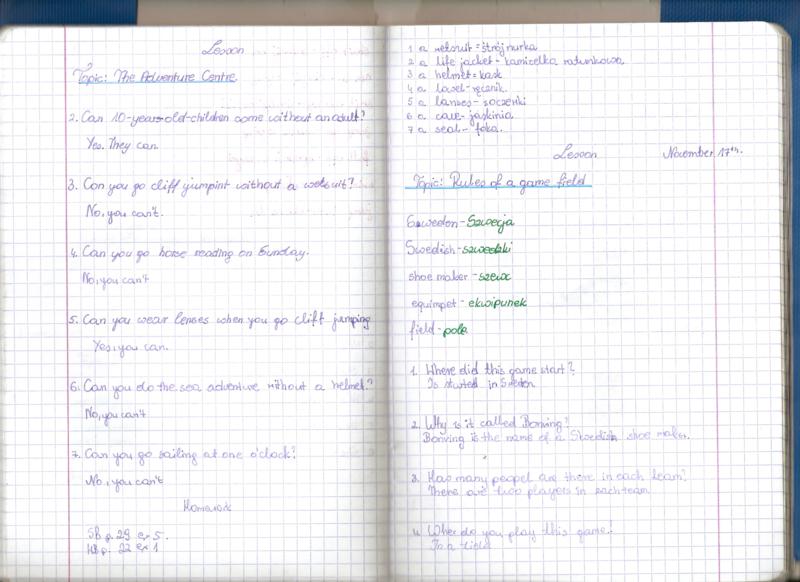 Lesson
Topic: The Adventure Centre
2. Can 10-years-old-children come without an adult?
Yes. They can.
3. Can you go cliff yumpint without a wetsuit?
No, you can't.
4. Can you go horse reading on Sunday.
No, you can't
5. Can you wear lenses when you go clift jumping
Yes, you can.
6. Can you do the sea adventure without a helmet?
No, you can't
7. Can you go sailing at one o'clock?
No, you can't
Homework
SB p. 29 ex 5.
WB p. 22 ex 1
1 a wetsuit = strój nurka
2 a life jacket - kamizelka ratunkowa
3 a helmet = kask
4 a towel - ręcznik
5 a lanses - soczewki
6 a cave - jaskinia
7 a seal - foka.
Lesson November 17th.
Topic: Rules of a game field
Sweden - Szwecja
Swedish - szwedzki
shoe maker - szewc
equimpet - ekwipunek
field - pole
1. Where did this game start?
Is started in Sweden
2. Why is it called Bonving?
Bonving is the name of a Skwedish shoe maker.
3. How many peopel are there in each team?
There are two players in each team
4. Wher do you play this game?
In a field